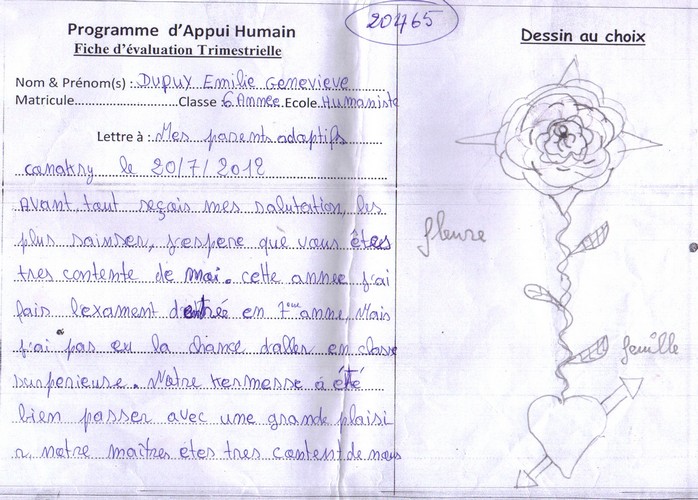 20465
Programme d'Appui Humain
Fiche d'évaluation Trimestrielle
Dessin au choix
Nom & Prénom(s) : DUPUY Emilie Genevieve
Matricule..............Classe 6 Année Ecole Humaniste
Lettre à : Mes parents adaptifs
canakry le 20/7/2012
Avant tout reçois mes salutation, les
plus sainser, j'espere que vous êtes
tres contente de moi. cette annee j'ai
fais l'exament d'entrée en 7eme anne, Mais
j'ai pas eu la chance d'aller en classe
surperieuse. Notre kermesse à été
bien passer avec une grande plaisi
r notre maîtres êtes tres content de nous
fleure
feuille